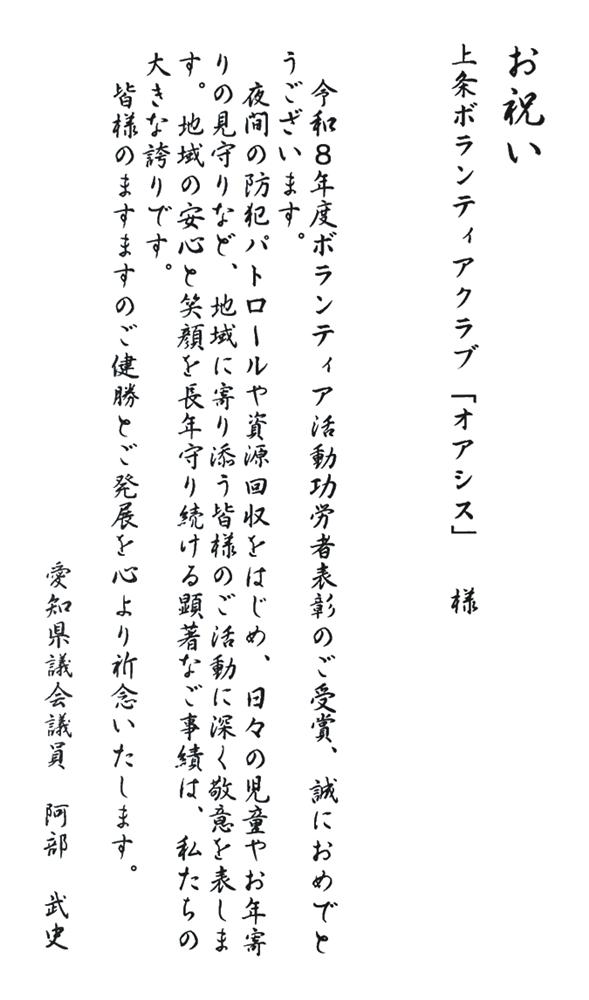 お祝い
上条ボランティアクラブ「オアシス」　様
令和８年度ボランティア活動功労者表彰のご受賞、誠におめでと
うございます。
夜間の防犯パトロールや資源回収をはじめ、日々の児童やお年寄
りの見守りなど、地域に寄り添う皆様のご活動に深く敬意を表しま
す。地域の安心と笑顔を長年守り続ける顕著なご事績は、私たちの
大きな誇りです。
皆様のますますのご健勝とご発展を心より祈念いたします。
愛知県議会議員　阿部　武史